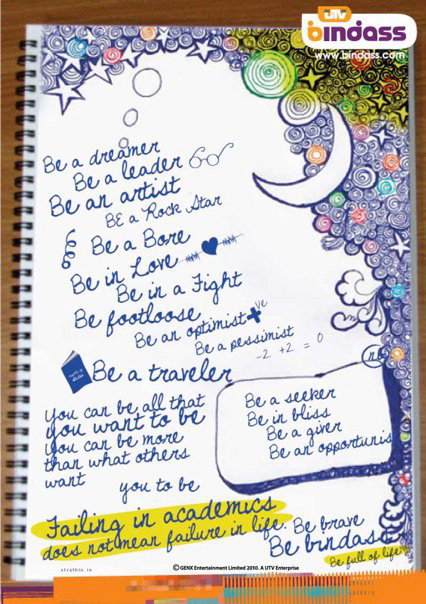 UTV
bindass
www.bindass.com
Be a dreamer
Be a leader
Be an artist
BE a Rock Star
Be a Bore
Be in Love
Be in a Fight
Be footloose
Be an optimist +ve
Be a pessimist
-2 +2 = 0
Be a traveler
you can be all that
you want to be
you can be more
than what others
want
you to be
Be a seeker
Be in bliss
Be a giver
Be an opportunis
Failing in academics
does not mean failure in life.
Be brave
Be bindass
Be full of life
strathin.in
© GENX Entertainment Limited 2010. A UTV Enterprise